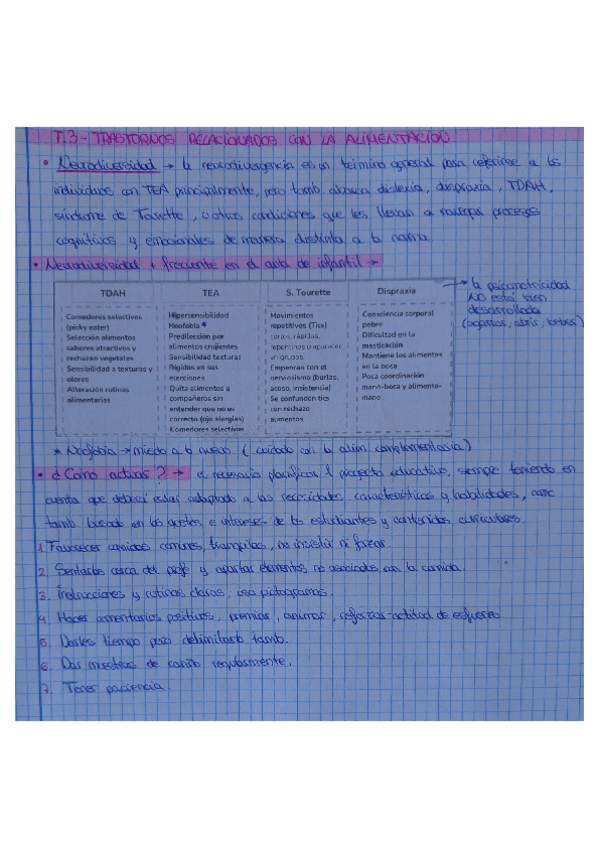 T.3 - TRASTORNOS RELACIONADOS CON LA ALIMENTACIÓN
• Neurodiversidad → la neurodivergencia es un término general para referirse a los
individuos con TEA principalmente, pero tamb. abarca dislexia, dispraxia, TDAH,
síndrome de Tourette, u otras condiciones que les llevan a manejar procesos
cognitivos y emocionales de manera distinta a la norma.
• Neurodiversidad + frecuente en el aula de infantil →
TDAH
Comedores selectivos
(picky eater)
Selección alimentos
sabores atractivos y
rechazan vegetales
Sensibilidad a texturas y
olores
Alteración rutinas
alimentarias
TEA
Hipersensibilidad
Neofobia *
Predilección por
alimentos crujientes
Sensibilidad texturas
Rígidos en sus
elecciones
Quita alimentos a
compañeros sin
entender que no es
correcto (ojo alergias)
Comedores selectivos
S. Tourette
Movimientos
repetitivos (Tics)
cortos, rápidos,
repentinos o aparecer
en grupos.
Empeoran con el
nerviosismo (burlas,
acoso, insistencia)
Se confunden tics
con rechazo
alimentos
Dispraxia
Consciencia corporal
pobre
Dificultad en la
masticación
Mantiene los alimentos
en la boca
Poca coordinación
mano-boca y alimento-
mano
→ la psicomotricidad
NO está bien
desarrollada
(agarrar, abrir, beber)
* Neofobia → miedo a lo nuevo (cuidado con la alim. complementaria)
• ¿Cómo actuar? → es necesario planificar 1 proyecto educativo, siempre teniendo en
cuenta que deberá estar adaptado a las necesidades, características y habilidades, como
tamb. basado en los gustos e intereses de los estudiantes y contenidos curriculares.
1. Favorecer comidas comunes, tranquilas, no insistir ni forzar.
2. Sentarlos cerca del profe y apartar elementos no asociados con la comida.
3. Instrucciones y rutinas claras, uso pictogramas.
4. Hacer comentarios positivos, premiar, animar, reforzar actitud de esfuerzo
5. Darles tiempo pero delimitarlo tamb.
6. Dar muestras de cariño regularmente.
7. Tener paciencia.